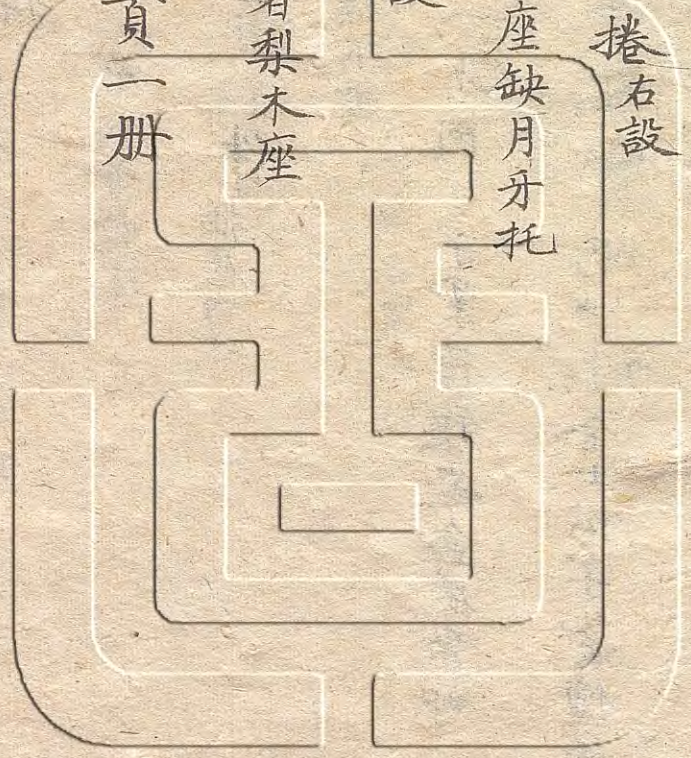 捲右設
座缺月牙托
梨木座
一册